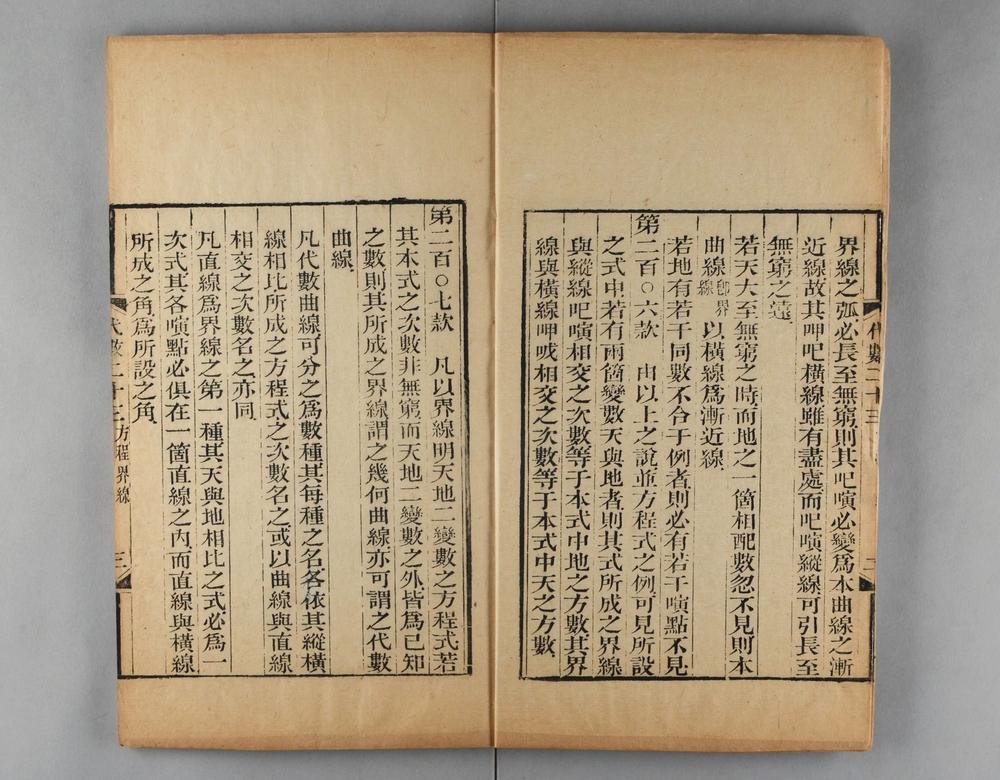 界線之弧必長至無窮則其吧嗊必變爲本曲線之漸
近線故其呷吧橫線雖有盡處而吧嗊縱線可引長至
無窮之遠
若天大至無窮之時而地之一箇相配數忽不見則本
曲線卽界線以橫線爲漸近線
若地有若干同數不合于例者則必有若干嗊點不見
第二百〇六款 由以上之說並方程式之例可見所設
之式中若有兩箇變數天與地者則其式所成之界線
與縱線吧嗊相交之次數等于本式中地之方數其界
線與橫線呷㖅相交之次數等于本式中天之方數
代數二十三
二
第二百〇七款 凡以界線明天地二變數之方程式若
其本式之次數非無窮而天地二變數之外皆爲已知
之數則其所成之界線謂之幾何曲線亦可謂之代數
曲線
凡代數曲線可分之爲數種其每種之名各依其縱橫
線相比所成之方程式之次數名之或以曲線與直線
相交之次數名之亦同
凡直線爲界線之第一種其天與地相比之式必爲一
次式其各嗊點必俱在一箇直線之內而直線與橫線
所成之角爲所設之角
代數二十三 方程界線
三